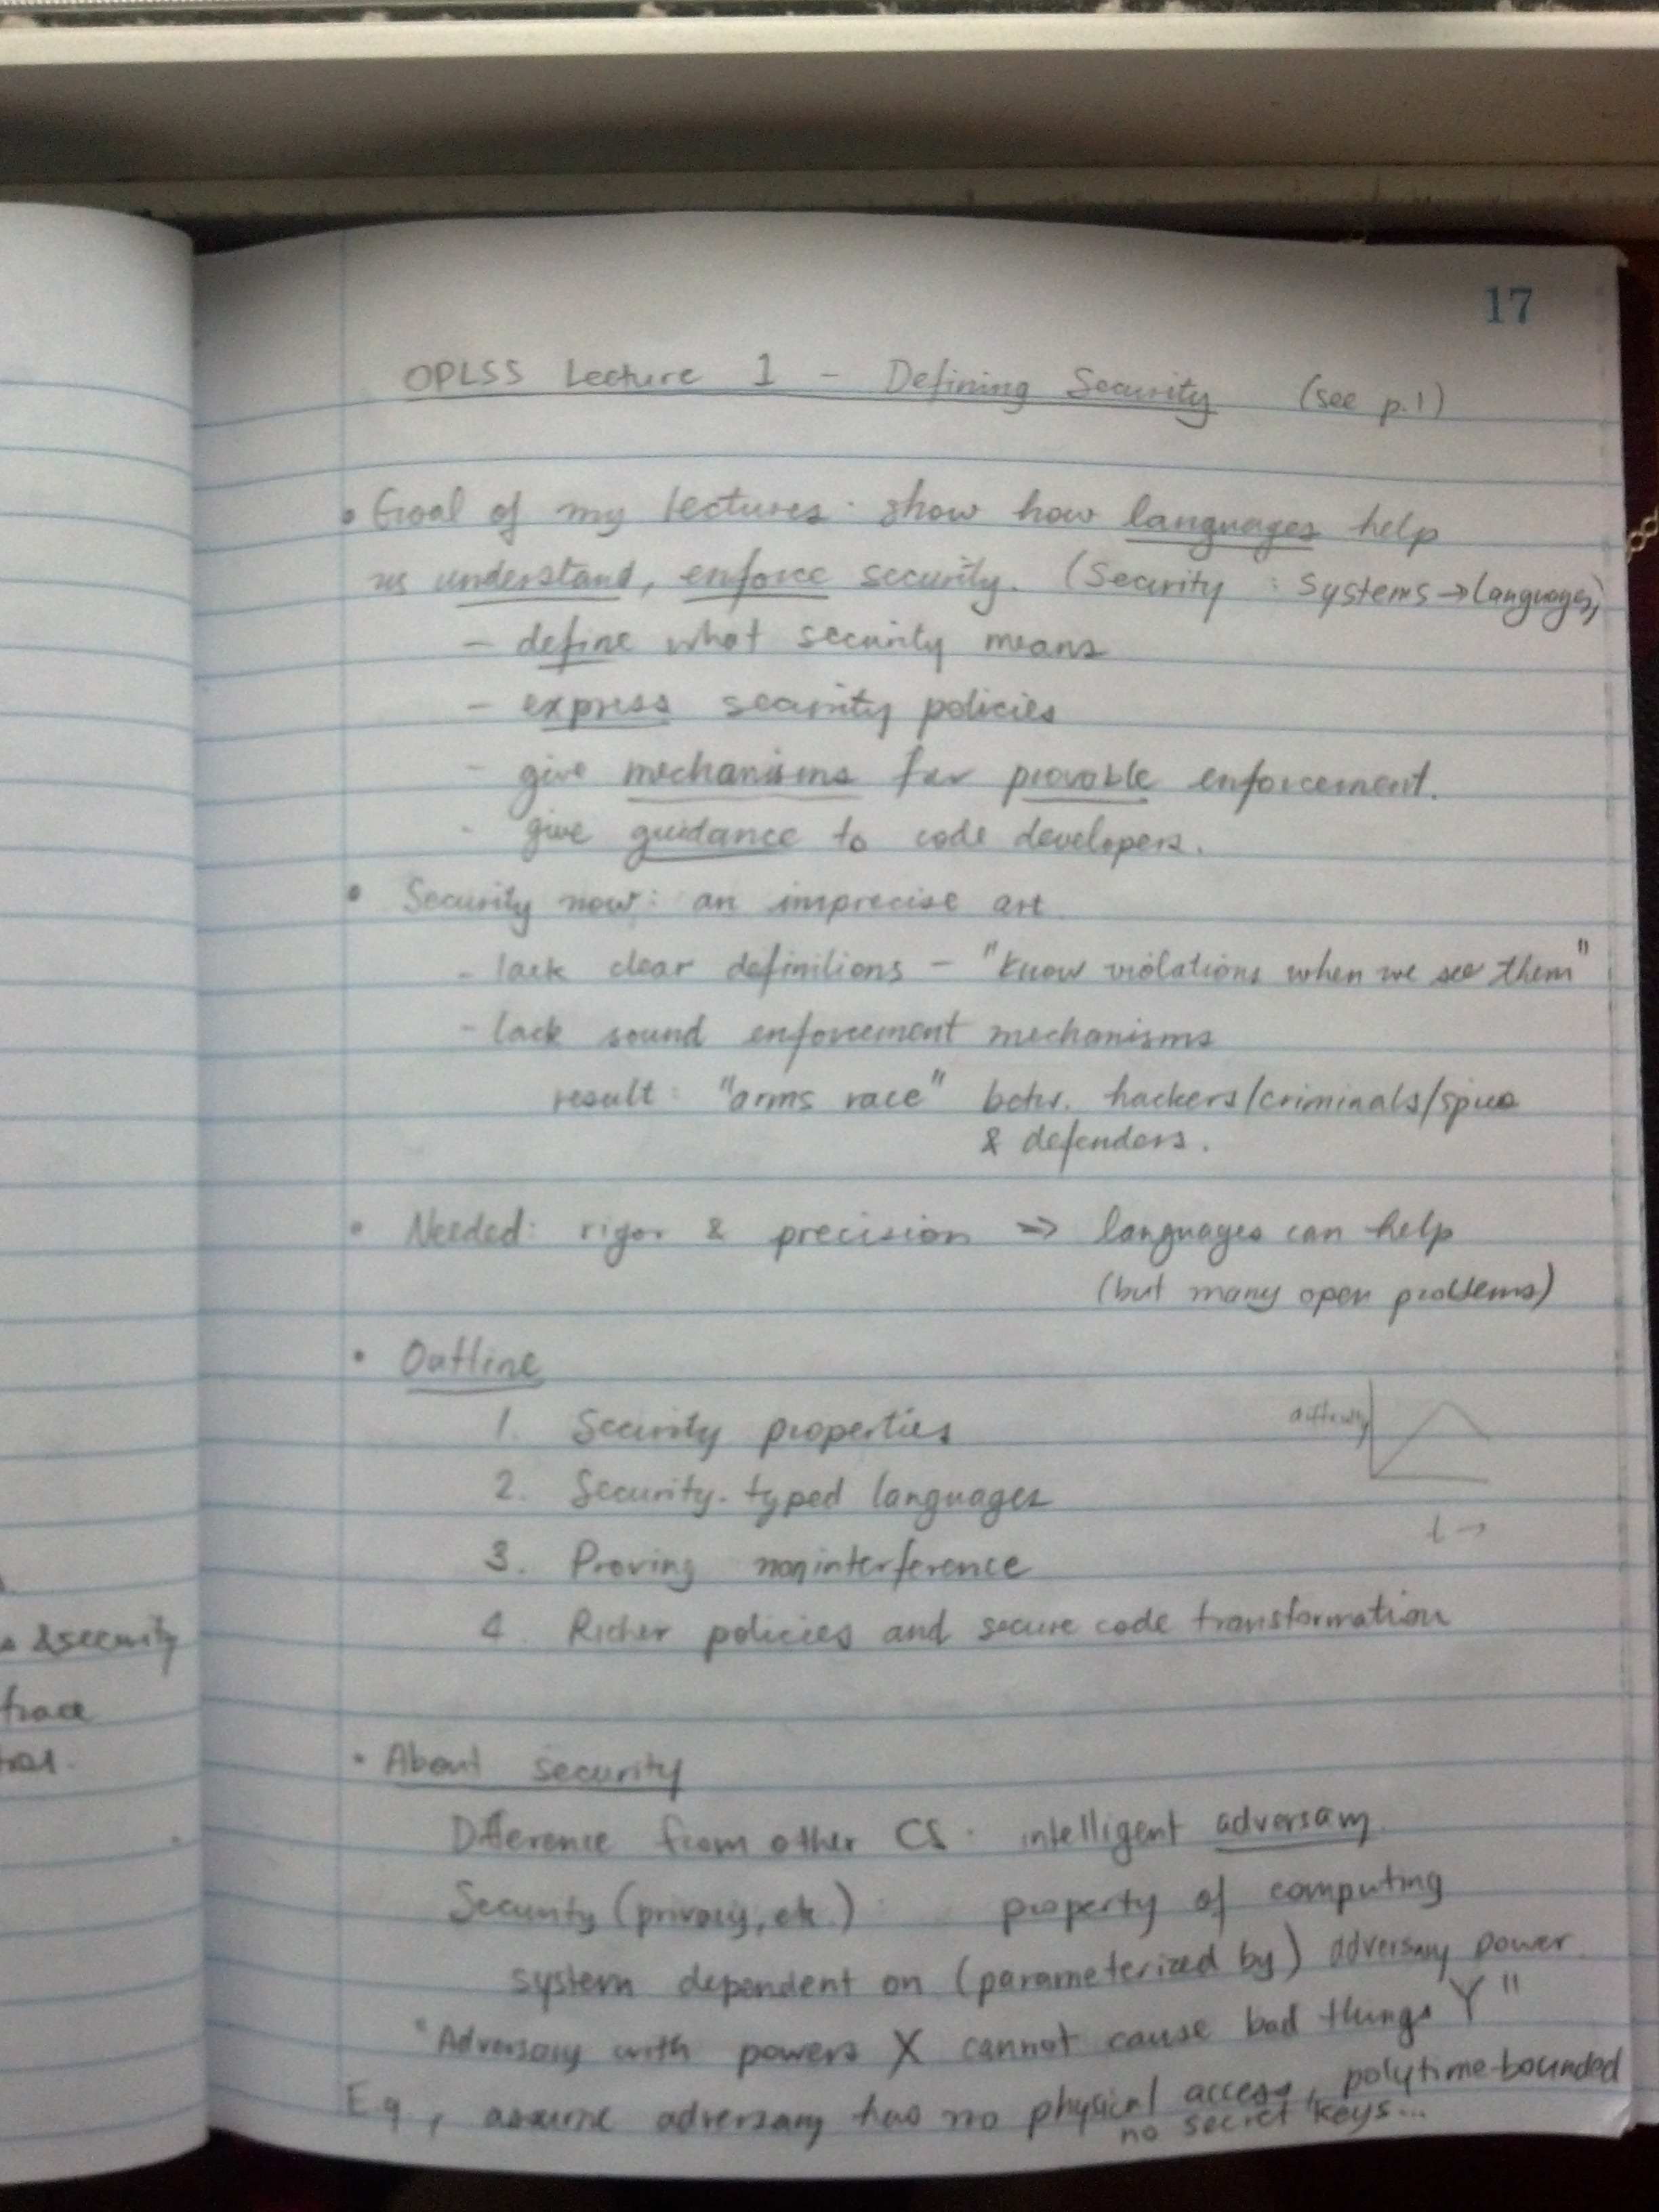 17
OPLSS Lecture 1 - Defining Security (see p.1)
• Goal of my lectures: show how languages help
us understand, enforce security. (Security : Systems → languages)
- define what security means
- express security policies
- give mechanisms for provable enforcement.
- give guidance to code developers.
• Security now: an imprecise art
- lack clear definitions - "know violations when we see them"
- lack sound enforcement mechanisms
result: "arms race" betw. hackers/criminals/spies
& defenders.
• Needed: rigor & precision ⇒ languages can help
(but many open problems)
• Outline
1. Security properties
difficulty
2. Security-typed languages
t →
3. Proving noninterference
4. Richer policies and secure code transformation
& security
• About security
Difference from other CS: intelligent adversary
Security (privacy, etc.): property of computing
system dependent on (parameterized by) adversary power.
"Adversary with powers X cannot cause bad things Y"
Eg, assume adversary has no physical access, polytime-bounded
no secret keys...